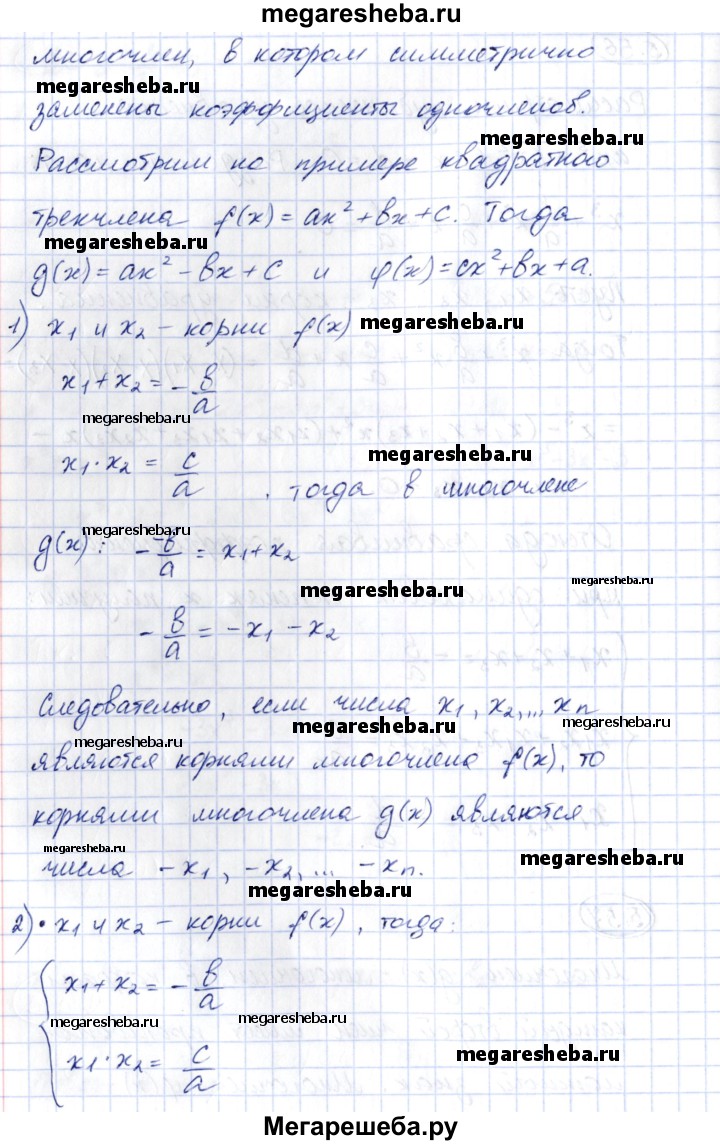 megaresheba.ru
многочлен, в котором симметрично
megaresheba.ru
заменены коэффициенты одночленов.
megaresheba.ru
Рассмотрим на примере квадратного
трехчлена f(x) = ax² + bx + c. Тогда
megaresheba.ru
g(x) = ax² - bx + c и φ(x) = cx² + bx + a.
1) x₁ и x₂ - корни f(x)
megaresheba.ru
x₁ + x₂ = - b/a
megaresheba.ru
x₁ · x₂ = c/a , тогда в многочлене
megaresheba.ru
g(x): - -b/a = x₁ + x₂
megaresheba.ru
megaresheba.ru
- b/a = - x₁ - x₂
Следовательно, если числа x₁, x₂, ... xn
megaresheba.ru
megaresheba.ru
megaresheba.ru
являются корнями многочлена f(x), то
корнями многочлена g(x) являются
megaresheba.ru
megaresheba.ru
числа -x₁, -x₂, ... -xn.
megaresheba.ru
2) • x₁ и x₂ - корни f(x), тогда:
x₁ + x₂ = - b/a
megaresheba.ru
megaresheba.ru
megaresheba.ru
x₁ · x₂ = c/a
Мегарешеба.ру